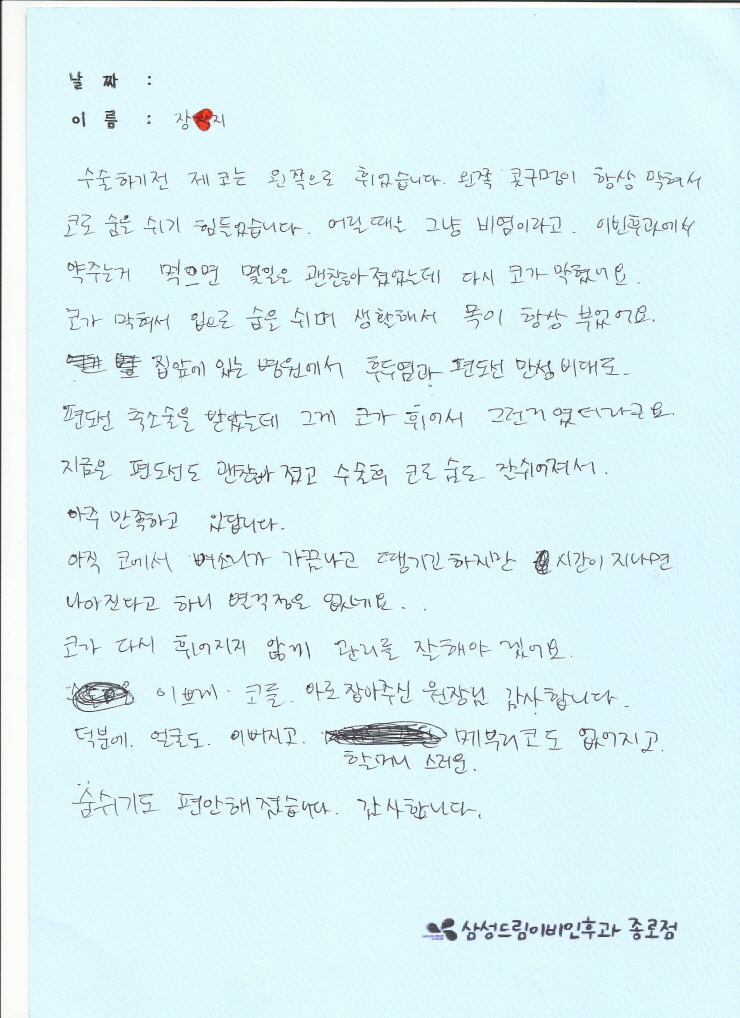 날 짜 :
이 름 : 장 지
수술하기전 제 코는 왼쪽으로 휘었습니다. 왼쪽 콧구멍이 항상 막혀서
코로 숨을 쉬기 힘들었습니다. 어릴때는 그냥 비염이라고. 이빈후과에서
약주는거 먹으면 몇일은 괜찮아졌었는데 다시 코가 막혔네요.
코가 막혀서 입으로 숨을 쉬며 생활해서 목이 항상 부었어요.
집앞에 있는 병원에서 후두염과 편도선 만성비대로.
편도선 축소술을 받았는데 그게 코가 휘어서 그런거 였더라구요.
지금은 편도선도 괜찮아 졌고 수술회 코로 숨도 잘쉬어져서.
아주 만족하고 있답니다.
아직 코에서 가끔나고 땡기긴하지만 시간이 지나면
나아진다고 하니 별걱정은 없네요..
코가 다시 휘어지지 않게 관리를 잘해야 겠어요.
이쁘게 코를. 바로잡아주신 원장님 감사합니다.
덕분에. 얼굴도. 이뻐지고. 할머니 스러운. 메부리코도 없어지고.
숨쉬기도 편안해졌습니다. 감사합니다.
삼성드림이비인후과 종로점